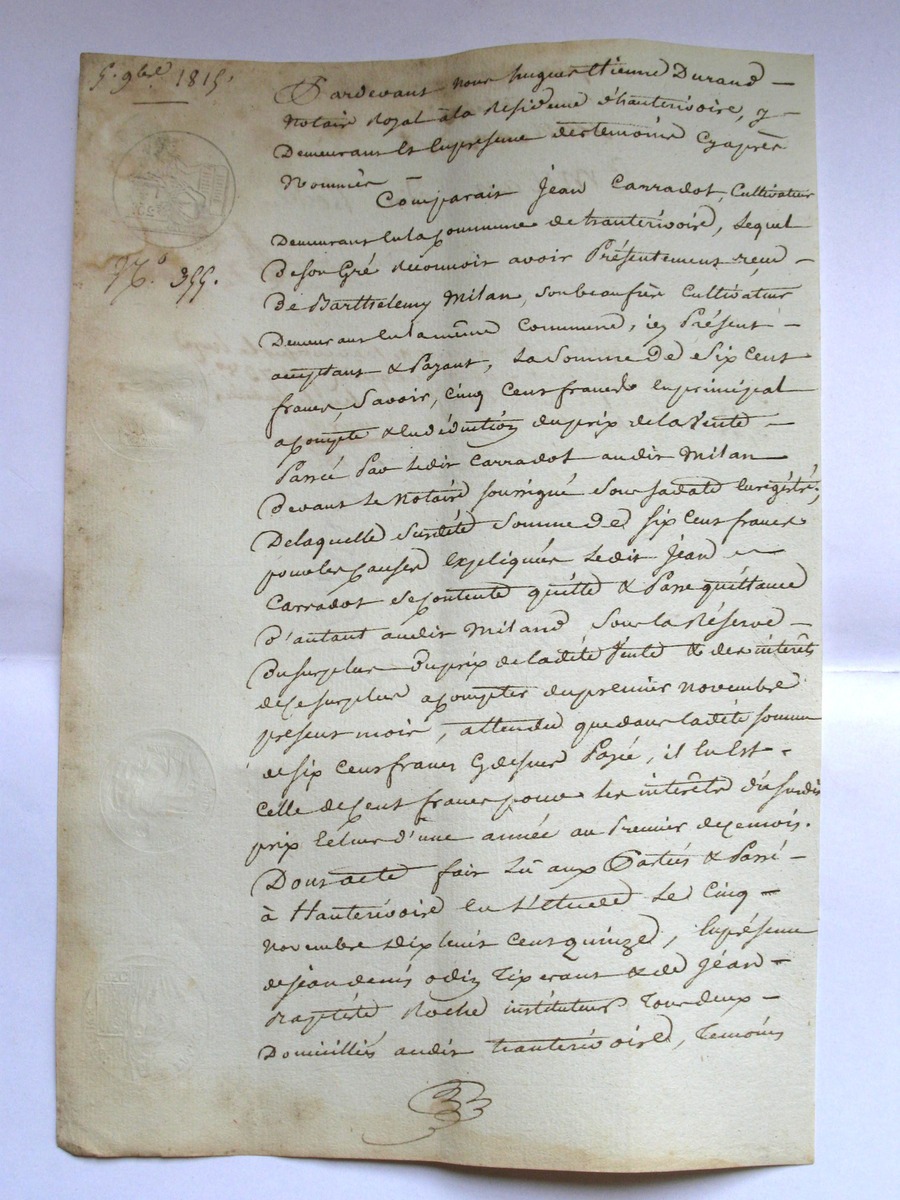 5. 9bre 1815.
Pardevant nous hugues Etienne Durand -
Notaire Royal à la Residence d'hauterivoire, y -
Demeurant Et Enpresence destemoins Cyaprès
Nommés
N.° 355.
Comparait Jean Carradot, Cultivateur
Demeurant Enla Commune de hauterivoire, Lequel
Deson Gré Reconnoit avoir Présentement reçu -
De Barthelemy Milan, sonbeaufrère Cultivateur
Demeurant Enlamême Commune, icy Présent -
acceptant & Payant, La somme De Six Cent
francs, Savoir, Cinq Cent francs Enprincipal
acompte & Endéduction duprix delaVente -
Passée Par Ledit Carradot audit Milan
Devant Le Notaire soussigné sous sadate Enregistrée,
Delaquelle susdite somme de six Cent francs
pour les Causes Expliquées Ledit Jean
Carradot Se Contente quitte & Passe quittance
D'autant audit Miland sous la Réserve -
Du surplus Duprix deladite Vente & des interêts
de Cesurplus acompter dupremier novembre
présent mois, attendu que dans ladite somme
de six Cent francs Cydessus Payée, il En Est -
Celle deCent francs pour les interêts dususdit
prix Echus d'une année au Premier deCemois.
Dont acte fait Lû aux Parties & Passé -
à Hauterivoire En L'Etude Le Cinq -
Novembre Dix huit Cent quinze, Enprésence
deJean denis odin Tixerant & de Jéan -
Baptiste Roche instituteur Tous deux -
Domiciliés audit hauterivoire, Temoins